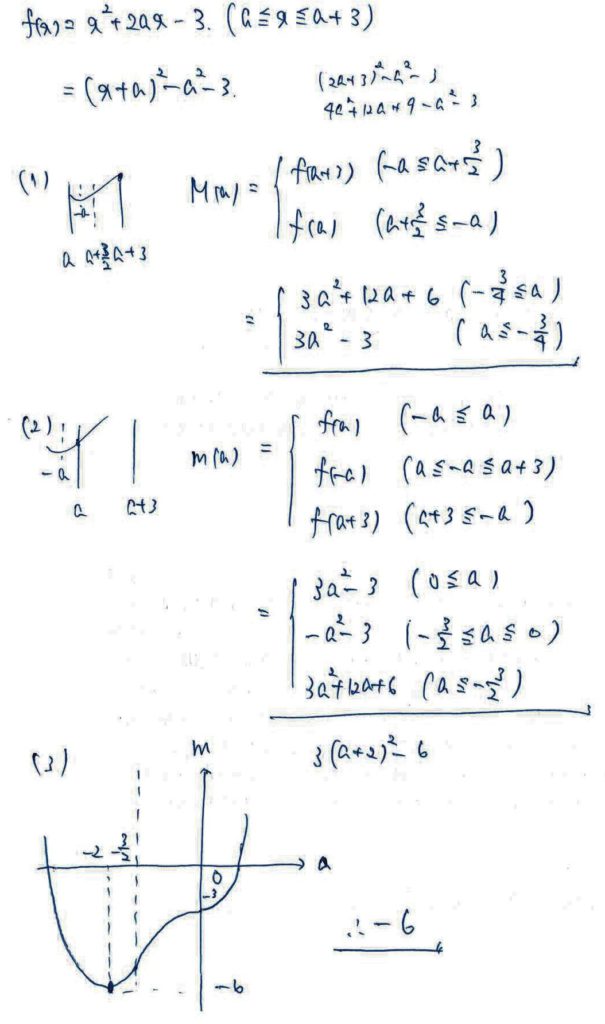 f(x) = x² + 2ax - 3. (a ≦ x ≦ a+3)
= (x+a)² - a² - 3.
(2a+3)² - a² - 3
4a² + 12a + 9 - a² - 3
(1)
-a
a a+3/2 a+3
M(a) = { f(a+3) (-a ≦ a+3/2)
f(a) (a+3/2 ≦ -a)
= { 3a² + 12a + 6 (-3/4 ≦ a)
3a² - 3 (a ≦ -3/4)
(2)
-a
a a+3
m(a) = { f(a) (-a ≦ a)
f(-a) (a ≦ -a ≦ a+3)
f(a+3) (a+3 ≦ -a)
= { 3a² - 3 (0 ≦ a)
-a² - 3 (-3/2 ≦ a ≦ 0)
3a² + 12a + 6 (a ≦ -3/2)
3(a+2)² - 6
(3)
m
-2 -3/2
0
a
-3
-6
∴ -6